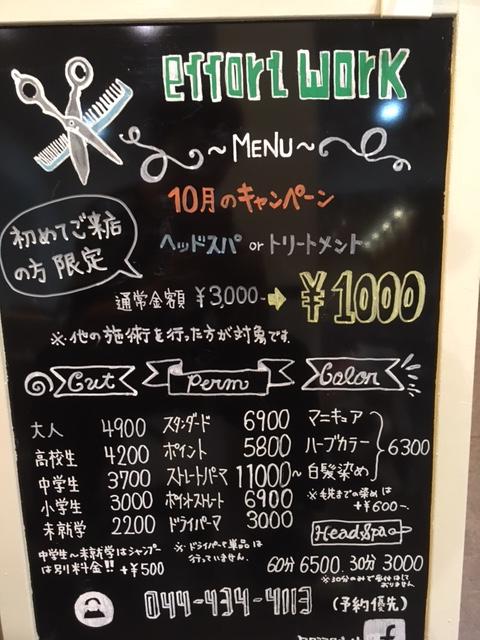 effort work
~MENU~
10月のキャンペーン
初めてご来店
の方 限定
ヘッドスパ or トリートメント
通常金額 ¥3,000- ➡ ¥1000
※他の施術を行った方が対象です
Cut Perm Color
大人 4900
高校生 4200
中学生 3700
小学生 3000
未就学 2200
中学生~未就学はシャンプー
は別料金!! +¥500
スタンダード 6900
ポイント 5800
ストレートパーマ 11000~
ポイントストレート 6900
ドライパーマ 3000
※ドライパーマ単品は
行っていません。
マニキュア
ハーブカラー 6300
白髪染め
※毛先までの染めは
+¥600-
Head Spa
60分 6500. 30分 3000
※30分のみで受付はして
おりません
044-434-4113 (予約優先)
f